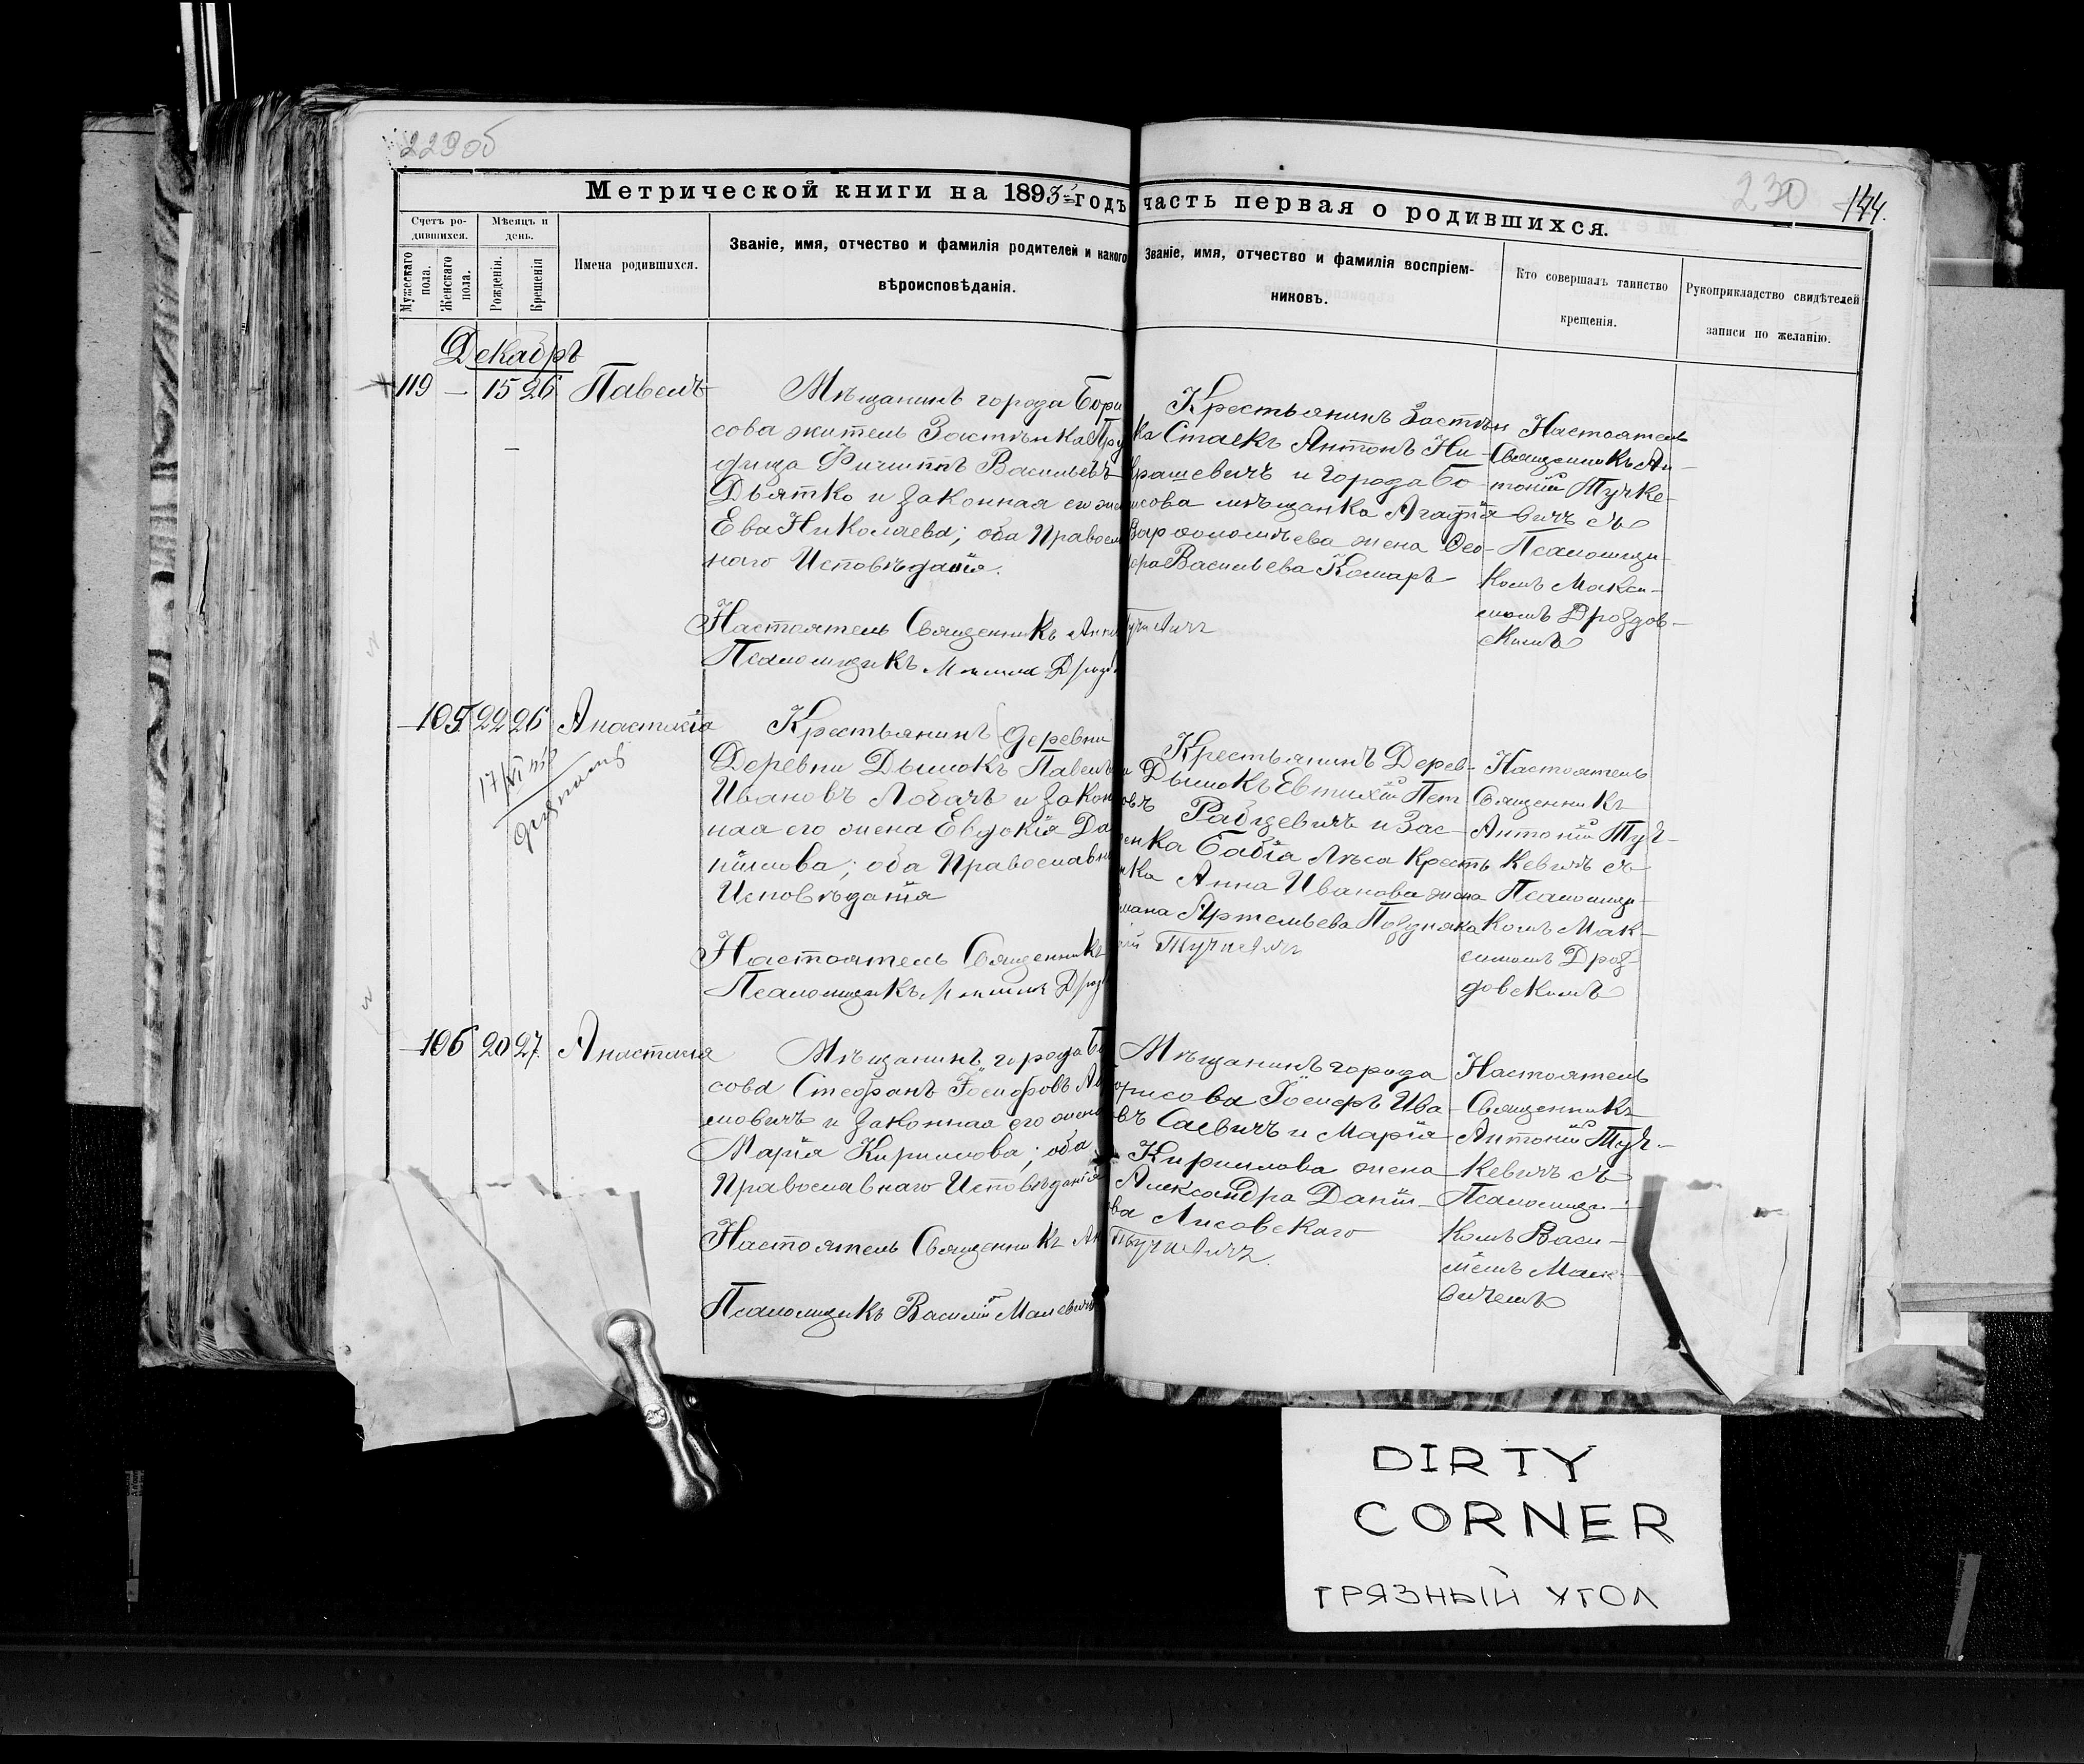 229об
230
144.
Метрической книги на 1893 годъ часть первая о родившихся.
Счетъ ро-
дившихся.
Мѣсяцъ и
день.
Мужескаго
пола.
Женскаго
пола.
Рожденія.
Крещенія
Имена родившихся.
Званіе, имя, отчество и фамилія родителей и какого
вѣроисповѣданія.
Званіе, имя, отчество и фамилія воспріем-
никовъ.
Кто совершалъ таинство
крещенія.
Рукоприкладство свидѣтелей
записи по желанію.
Декабрь
119 — 15 26 Павелъ
Мѣщанинъ города Бори
сова житель Застѣнка
Филиппъ Васильевъ
Дѣятко и законная его жен
Ева Николаева; оба Правосл
наго Исповѣданія.
Настоятель Священникъ
Псаломщикъ
Крестьянинъ Застѣн
ка Стаекъ Антонъ Ни-
крашевичъ и города Бо-
исова мѣщанка Агафія
Варфоломѣева жена Ѳео-
ора Васильева Комаръ
Тучкевичъ
Настоятель
Священникъ Ан-
тоній Тучке-
вичъ съ
Псаломщи-
комъ Макси-
момъ Дроздов-
скимъ
105 22 26 Анастасія
17/XI
Крестьянинъ деревни
Деревни Дымокъ Павелъ
Ивановъ Лобачъ и закон
ная его жена Евдокія Да
ніилова; оба Православн
Исповѣданія
Настоятель Священникъ
Псаломщикъ
Крестьянинъ Дерев-
Дымокъ Евтихій Пет
овъ Рабцевичъ и Зас-
енка Бабія Лѣса Кресть
нка Анна Иванова жена
мана Артемьева Позняка
Тучкевичъ
Настоятель
Священникъ
Антоній Туч-
кевичъ съ
Псаломщи-
комъ Мак-
симомъ Дроз-
довскимъ
106 20 27. Анастасія
Мѣщанинъ города Бо
сова Стефанъ Іосифовъ
мовичъ и законная его жена
Марія Кириллова; оба
Православнаго Исповѣданія
Настоятель Священникъ Ан
Псаломщикъ Василій Малевичъ
Мѣщанинъ города
орисова Іосифъ Ива-
овъ Саевичъ и Марія
Кириллова жена
Александра Даніи-
ова Лисовскаго
Тучкевичъ.
Настоятель
Священникъ
Антоній Туч-
кевичъ съ
Псаломщи-
комъ Васи-
ліемъ Мале-
вичемъ
DIRTY
CORNER
ГРЯЗНЫЙ УГОЛ